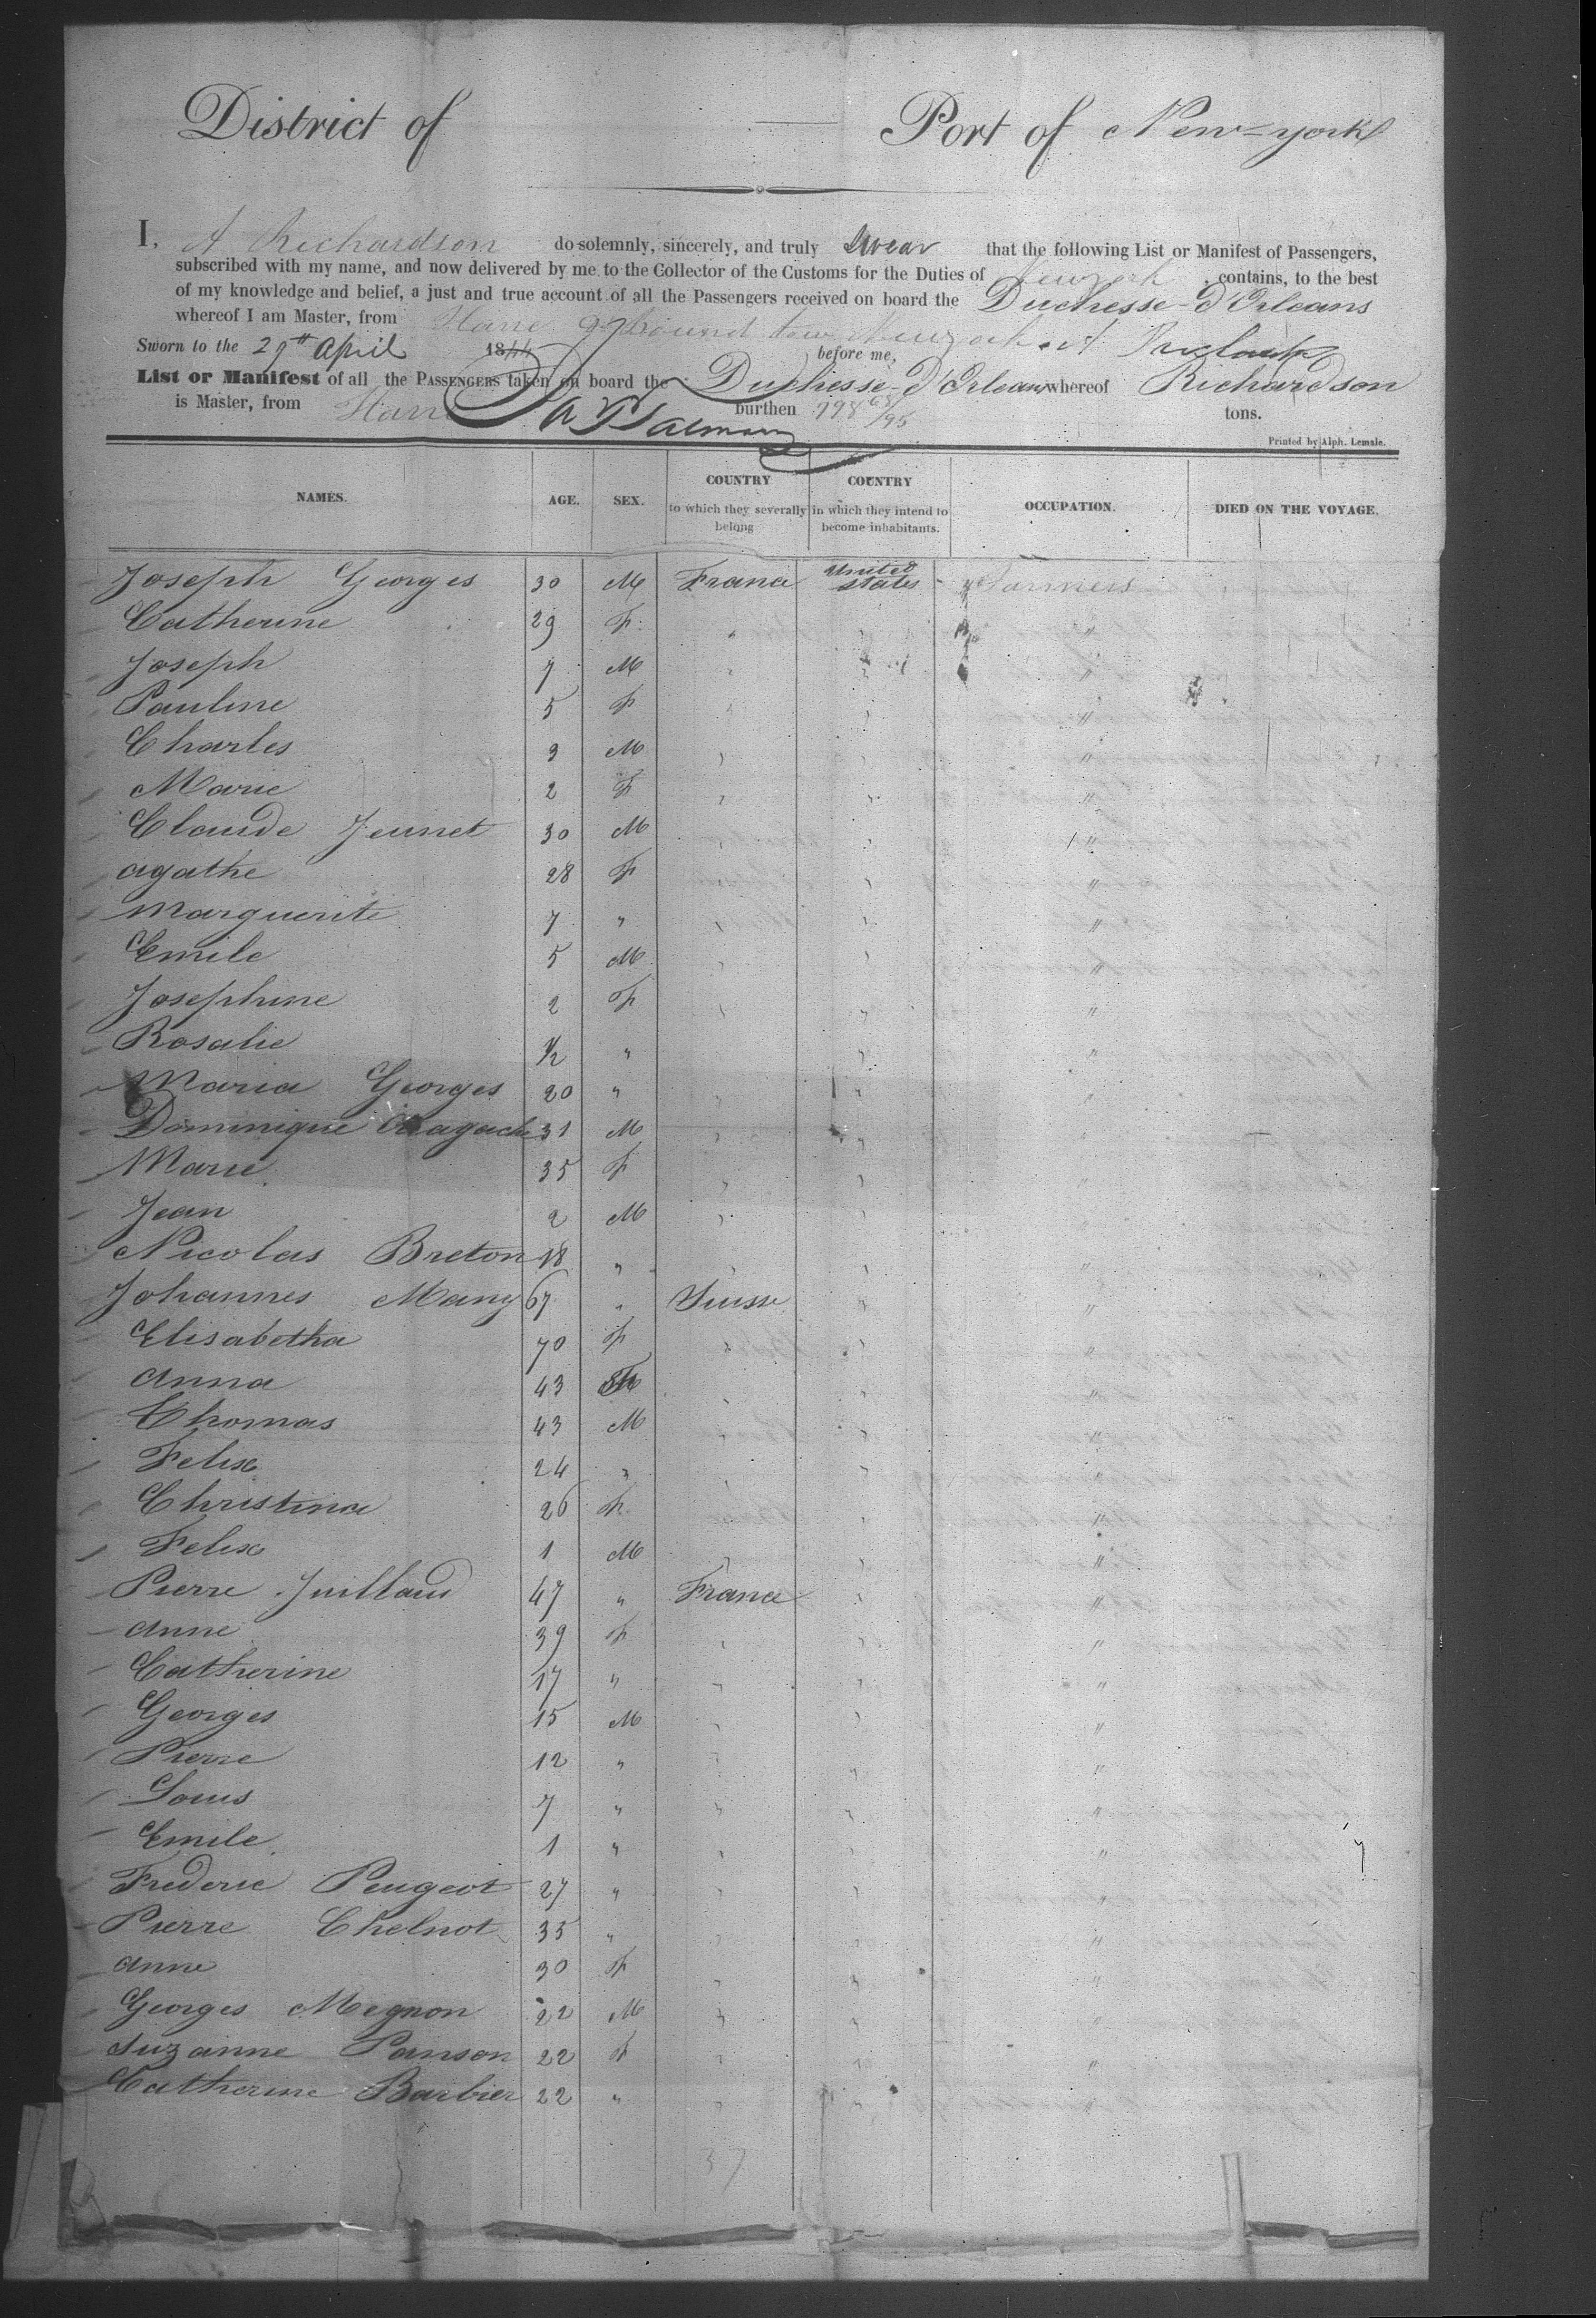 District of Port of New-york
I, A Richardson do solemnly, sincerely, and truly swear that the following List or Manifest of Passengers,
subscribed with my name, and now delivered by me to the Collector of the Customs for the Duties of Newyork contains, to the best
of my knowledge and belief, a just and true account of all the Passengers received on board the Duchesse-d'Orleans
whereof I am Master, from Havre bound
Sworn to the 29th April 1844 before me,
List or Manifest of all the PASSENGERS taken on board the Duchesse-d'Orleans whereof Richardson
is Master, from Havre burthen 798 68/95 tons.
Printed by Alph. Lemale.
NAMES. AGE. SEX. COUNTRY to which they severally belong COUNTRY in which they intend to become inhabitants. OCCUPATION. DIED ON THE VOYAGE.
Joseph Georges 30 M France United states Farmers
Catherine 29 F " " "
Joseph 7 M " " "
Pauline 5 F " " "
Charles 3 M " " "
Marie 2 F " " "
Claude Jeunet 30 M " " "
Agathe 28 F " " "
Marguerite 7 " " " "
Emile 5 M " " "
Josephine 2 F " " "
Rosalie 1/2 " " "
Maria Georges 20 " " " "
Dominique 31 M " "
Marie 35 F " " "
Jean 2 M " " "
Nicolas Breton 18 " " " "
Johannes Many 67 " Suisse " "
Elisabetha 70 F " " "
Anna 43 " " "
Thomas 43 M " " "
Felix 24 " " " "
Christina 26 F " " "
Felix 1 M " " "
Pierre Juillard 47 " France " "
Anne 39 F " " "
Catherine 17 " " " "
Georges 15 M " " "
Pierre 12 " " " "
Louis 7 " " " "
Emile 1 " " " "
Frederic Peugeot 27 " " " "
Pierre Chelnot 35 " " " "
Anne 30 F " " "
Georges Megnon 22 M " " "
Suzanne Panson 22 F " " "
Catherine Barbier 22 " " " "
37